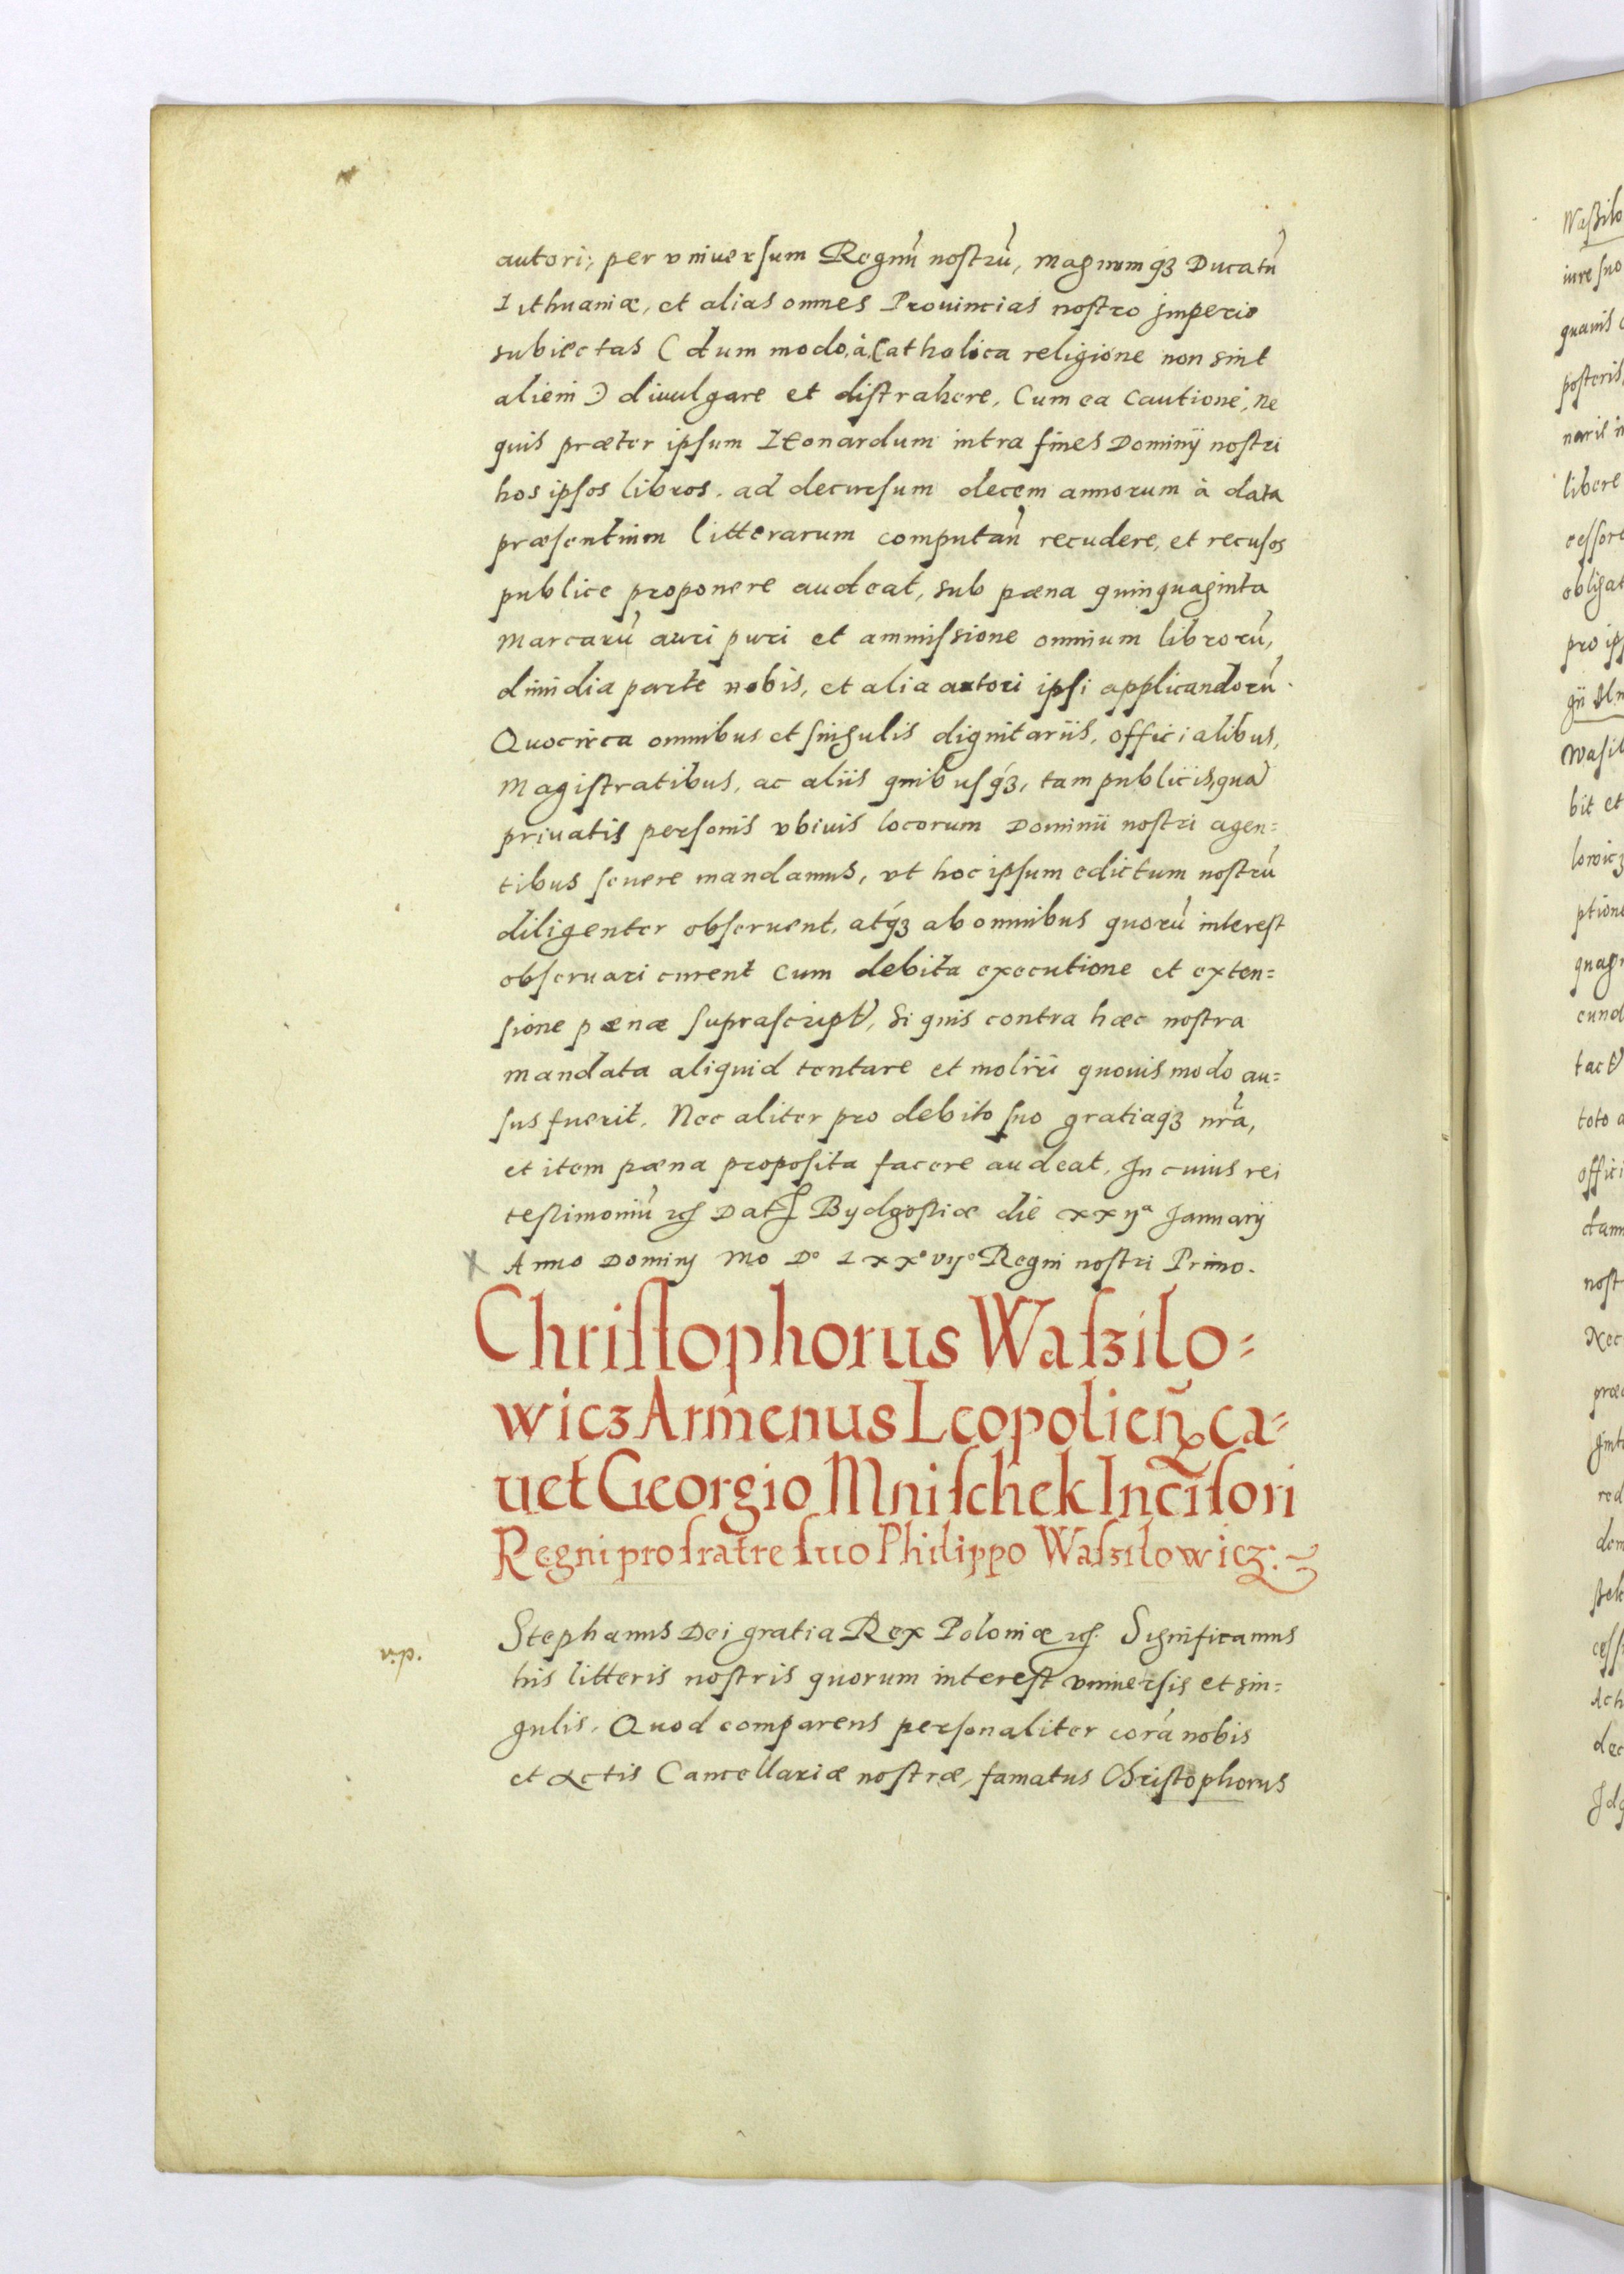 autori; per vniuersum Regnũ nostrũ, magnumqꝫ Ducatũ
Lithuaniæ, et alias omnes Prouincias nostro jmperio
subiectas (dum modo à Catholica religione non sint
alieni) diuulgare et distrahere, Cum ea Cautione, ne
quis præter ipsum Leonardum intra fines Dominij nostri
hos ipsos libros, ad decursum decem annorum à data
præsentium litterarum computañ recudere, et recusos
publice proponere audeat, sub pæna quinquaginta
marcarũ auri puri et ammissione omnium librorũ,
dimidia parte nobis, et alia autori ipsi applicandorũ.
Quocirca omnibus et singulis dignitariis, officialibus,
magistratibus, ac aliis quibusqꝫ, tam publicis, quã
priuatis personis vbiuis locorum Dominii nostri agen=
tibus seuere mandamus, vt hoc ipsum edictum nostrũ
diligenter obseruent, atqꝫ ab omnibus quorũ interest
obseruari curent cum debita executione et exten=
sione pænæ suprascript, Si quis contra hæc nostra
mandata aliquid tentare et moliri quouis modo au=
sus fuerit. Nec aliter pro debito suo gratiaqꝫ nr̃a,
et item pæna proposita facere audeat. Jn cuius rei
testimoniũ etc Dat Bydgostiæ die xxijª Januarij
Anno Dominj Mo Dº Lxxº vijº Regni nostri Primo.
Christophorus Waſzilo=
wicz Armenus Leopolien̄ ca=
uet Georgio Mnischek Incisori
Regni pro fratre suo Philippo Waſzilowicz:
Stephanus Dei gratia Rex Poloniæ etc. Significamus
his litteris nostris quorum interest vniuersis et sin=
gulis. Quod comparens personaliter corã nobis
et Actis Cancellariæ nostræ, famatus Christophorus